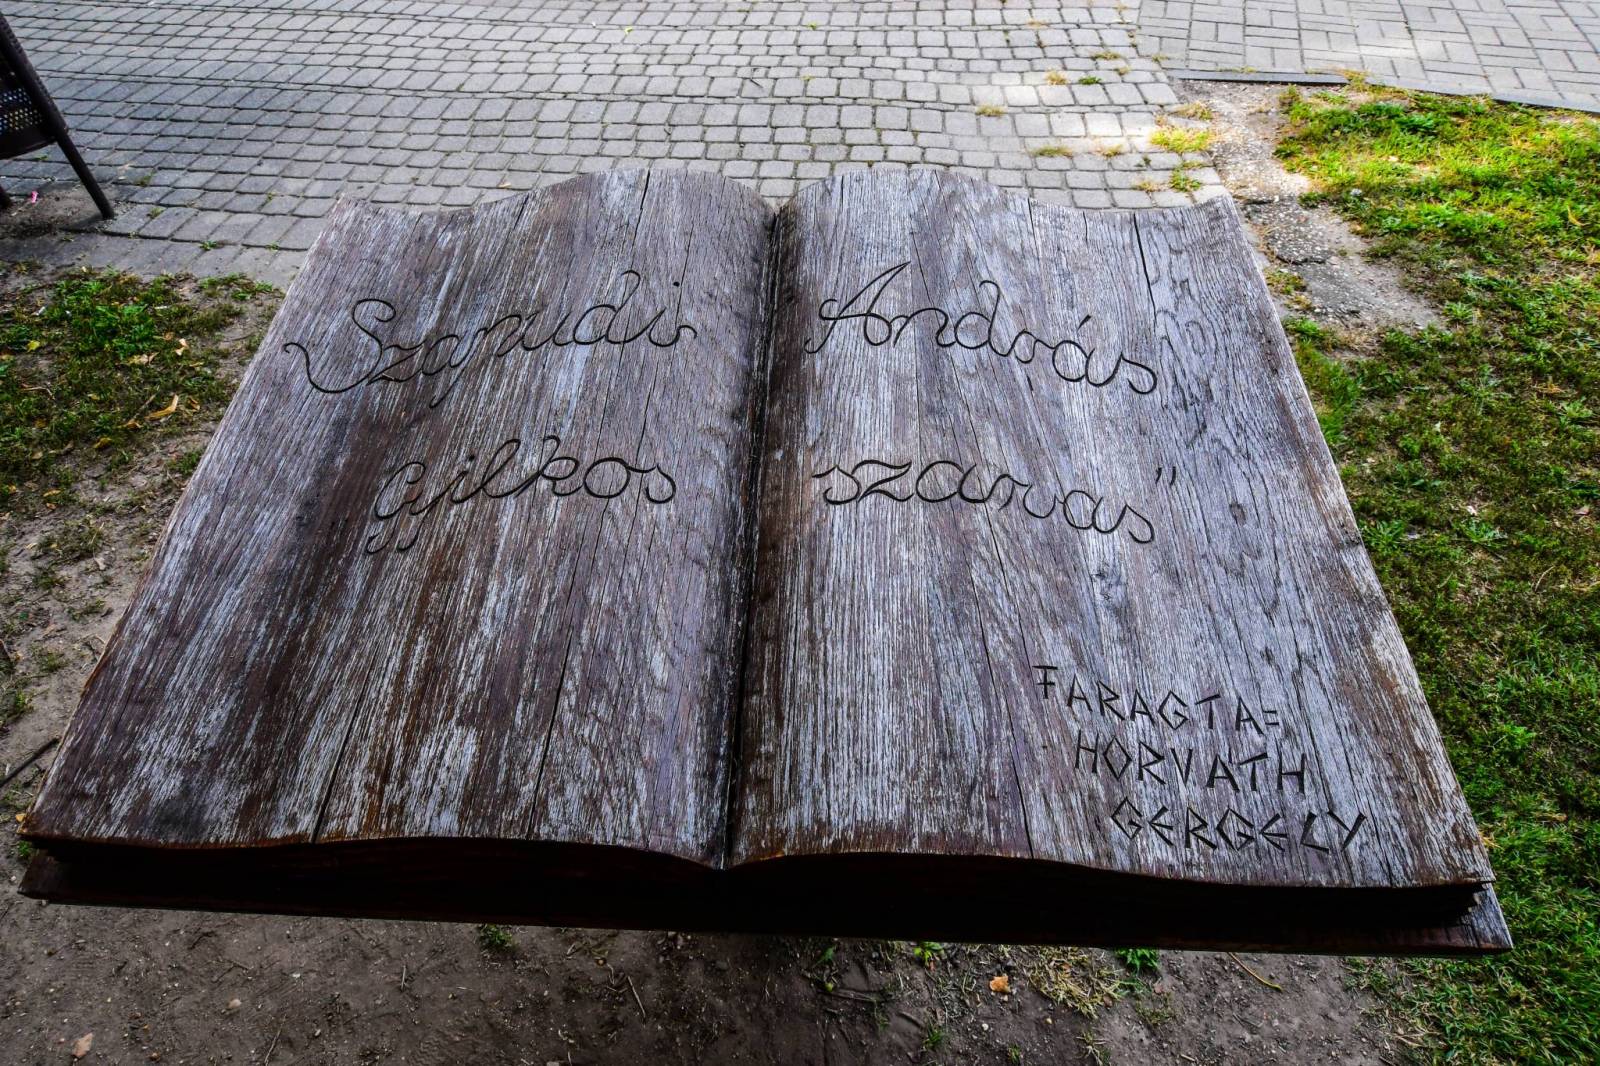 Szapudi András
gyilkos szarvas"
FARAGTA=
HORVATH
GERGELY